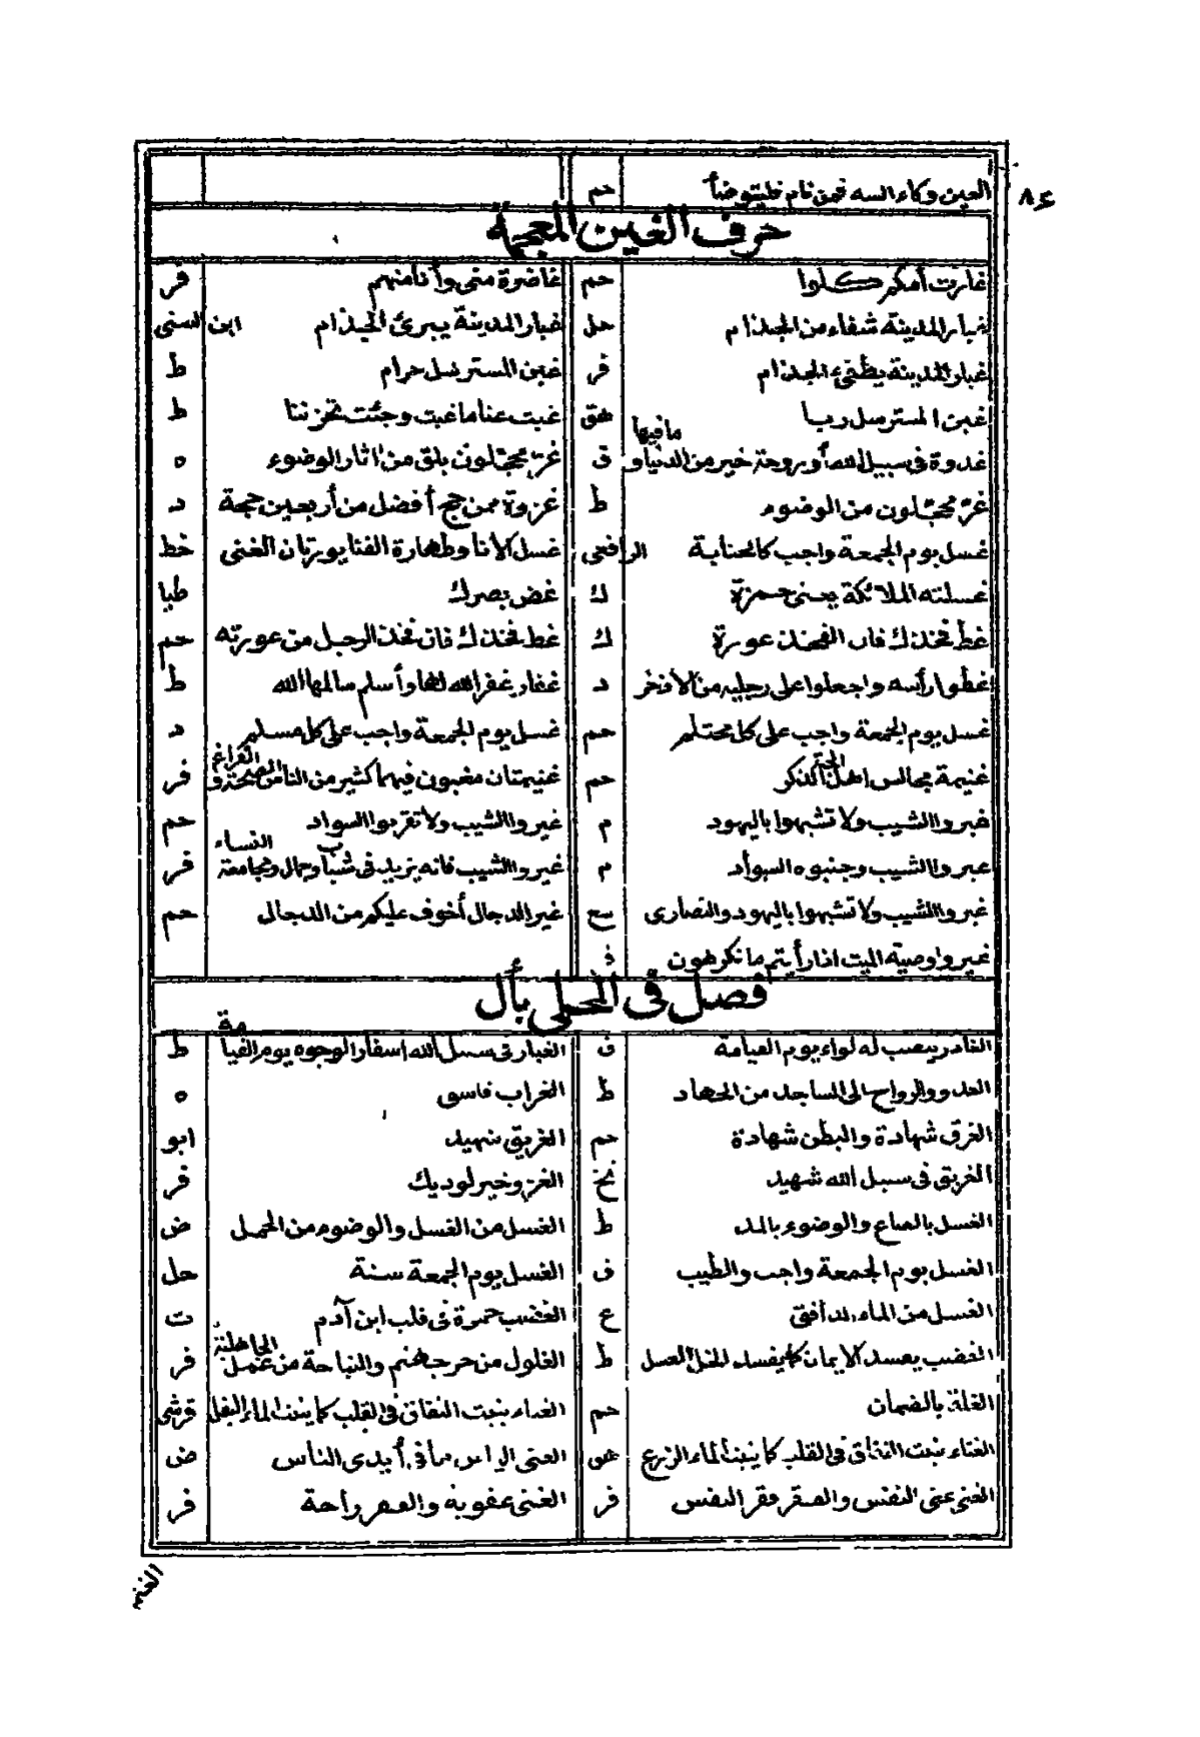 ٨٤
العين وكاء السه فمن نام فليتوضأ حم
حرف الغين المعجمة
غارت أمكم كلوا حم غاضرة منى وأنا منهم فر
غبار المدينة شفاء من الجذام حل غبار المدينة يبرئ الجذام ابن السنى
غبار المدينة يطفىء الجذام فر غبن المسترسل حرام ط
غبن المسترسل ربا هق غبت عنا ما غبت وجئت تحزننا ط
غدوة فى سبيل الله أو روحة خير من الدنيا وما فيها ق غر محجلون بلق من اثار الوضوء ه
غر محجلون من الوضوء ط غزوة ممن حج أفضل من أربعين حجة د
غسل يوم الجمعة واجب كالجنابة الرافعى غسل الانا وطهارة الفنا يورثان الغنى خط
غسلته الملائكة يعنى حمزة ك غض بصرك طيا
غط فخذك فان الفخذ عورة ك غط فخذك فان فخذ الرجل من عورته حم
غطوا رأسه واجعلوا على رجليه من الاذخر د غفار غفر الله لها وأسلم سالمها الله ط
غسل يوم الجمعة واجب على كل محتلم حم غسل يوم الجمعة واجب على كل مسلم د
غنيمة مجالس اهل الذكر الجنة حم غنيمتان مغبون فيهما كثير من الناس الصحة والفراغ فر
غيروا الشيب ولا تشبهوا باليهود م غيروا الشيب ولا تقربوا السواد حم
غيروا الشيب وجنبوه السواد م غيروا الشيب فانه يزيد فى شباب وجمال ومجامعة النساء فر
غيروا الشيب ولا تشبهوا باليهود والنصارى سع غير الدجال أخوف عليكم من الدجال حم
غيروا وصية الميت اذا رأيتم ما تكرهون
فصل فى المحلى بأل
الغادر ينصب له لواء يوم القيامة ق الغبار فى سبيل الله اسفار الوجوه يوم القيامة ط
الغدو والرواح الى المساجد من الجهاد ط الغراب فاسق ه
الغرق شهادة والبطن شهادة حم الغريق شهيد ابو
الغريق فى سبيل الله شهيد تخ الغزو خير لوديك فر
الغسل بالصاع والوضوء بالمد ط الغسل من الغسل والوضوء من الحمل ض
الغسل يوم الجمعة واجب والطيب ق الغسل يوم الجمعة سنة حل
الغسل من الماء الدافق ع الغضب جمرة فى قلب ابن آدم ت
الغضب يفسد الايمان كما يفسد الخل العسل ط الغلول من حر جهنم والنياحة من عمل الجاهلية فر
الغلة بالضمان حم الغناء ينبت النفاق فى القلب كما ينبت الماء البقل قرشى
الغناء ينبت النفاق فى القلب كما ينبت الماء الزرع هب الغنى الياس مما فى أيدى الناس ض
الغنى غنى النفس والفقر فقر النفس فر الغنى عقوبة والفقر راحة فر
الغنم